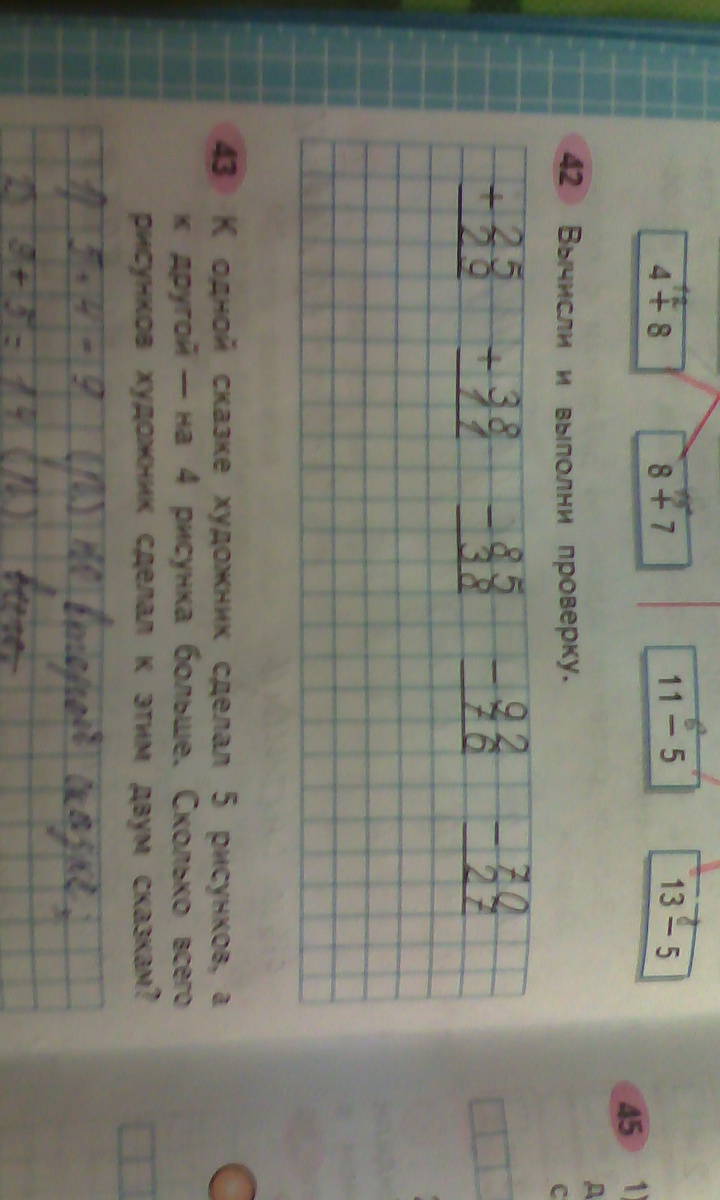 12 15 6 8
4 + 8 8 + 7 11 − 5 13 − 5
42 Вычисли и выполни проверку.
+ 25 + 38 − 85 − 92 − 70
29 11 38 76 27
43 К одной сказке художник сделал 5 рисунков, а
к другой — на 4 рисунка больше. Сколько всего
рисунков художник сделал к этим двум сказкам?
1) 5 + 4 = 9 (р.) ко второй
2) 9 + 5 = 14 (р.) всего
45 1
д
с